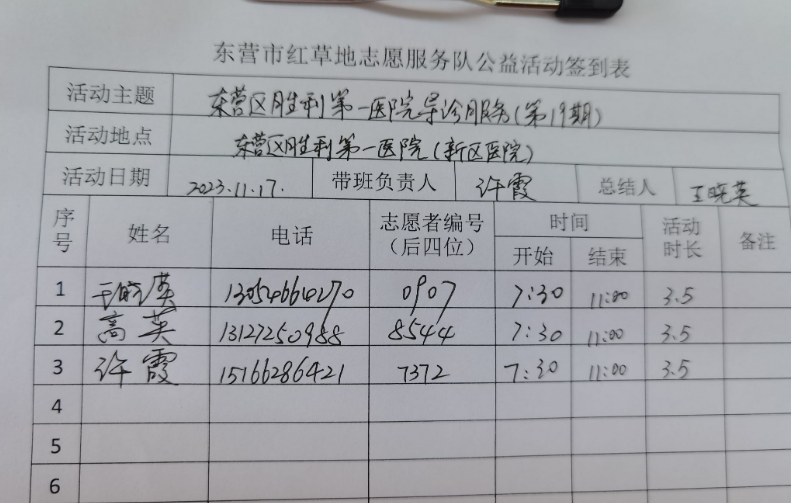 东营市红草地志愿服务队公益活动签到表
活动主题 东营区胜利第一医院导诊服务(第19期)
活动地点 东营区胜利第一医院(新区医院)
活动日期 2023.11.17. 带班负责人 许霞 总结人 王晓英
序号 姓名 电话 志愿者编号(后四位) 时间 开始 结束 活动时长 备注
1 王晓英 13054664270 0907 7:30 11:00 3.5
2 高英 13127250988 8544 7:30 11:00 3.5
3 许霞 15166286421 7372 7:30 11:00 3.5
4
5
6